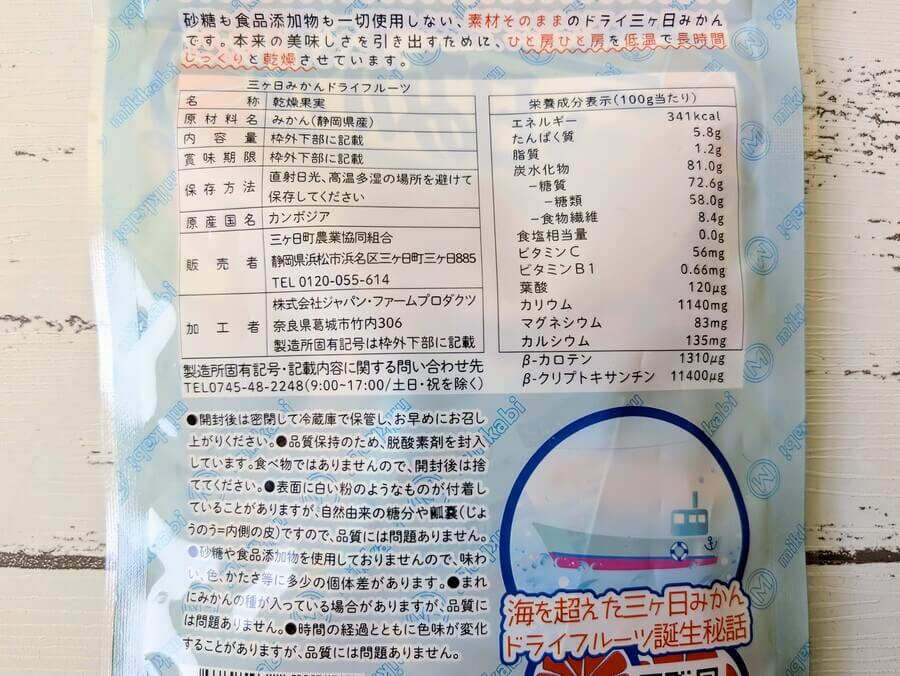 砂糖も食品添加物も一切使用しない、素材そのままのドライ三ヶ日みかん
です。本来の美味しさを引き出すために、ひと房ひと房を低温で長時間
じっくりと乾燥させています。
三ヶ日みかんドライフルーツ
名称 乾燥果実
原材料名 みかん(静岡県産)
内容量 枠外下部に記載
賞味期限 枠外下部に記載
保存方法 直射日光、高温多湿の場所を避けて
保存してください
原産国名 カンボジア
販売者 三ヶ日町農業協同組合
静岡県浜松市浜名区三ヶ日町三ヶ日885
TEL 0120-055-614
加工者 株式会社ジャパン・ファームプロダクツ
奈良県葛城市竹内306
製造所固有記号は枠外下部に記載
製造所固有記号・記載内容に関する問い合わせ先
TEL0745-48-2248(9:00~17:00/土日・祝を除く)
栄養成分表示(100g当たり)
エネルギー 341kcal
たんぱく質 5.8g
脂質 1.2g
炭水化物 81.0g
-糖質 72.6g
-糖類 58.0g
-食物繊維 8.4g
食塩相当量 0.0g
ビタミンC 56mg
ビタミンB1 0.66mg
葉酸 120μg
カリウム 1140mg
マグネシウム 83mg
カルシウム 135mg
β-カロテン 1310μg
β-クリプトキサンチン 11400μg
●開封後は密閉して冷蔵庫で保管し、お早めにお召し
上がりください。●品質保持のため、脱酸素剤を封入
しています。食べ物ではありませんので、開封後は捨
ててください。●表面に白い粉のようなものが付着し
ていることがありますが、自然由来の糖分や瓤嚢(じょ
うのう=内側の皮)ですので、品質には問題ありません。
●砂糖や食品添加物を使用しておりませんので、味わ
い、色、かたさ等に多少の個体差があります。●まれ
にみかんの種が入っている場合がありますが、品質に
は問題ありません。●時間の経過とともに色味が変化
することがありますが、品質には問題ありません。
海を超えた三ヶ日みかん
ドライフルーツ誕生秘話
mikkabi
mikkabi
mikkabi